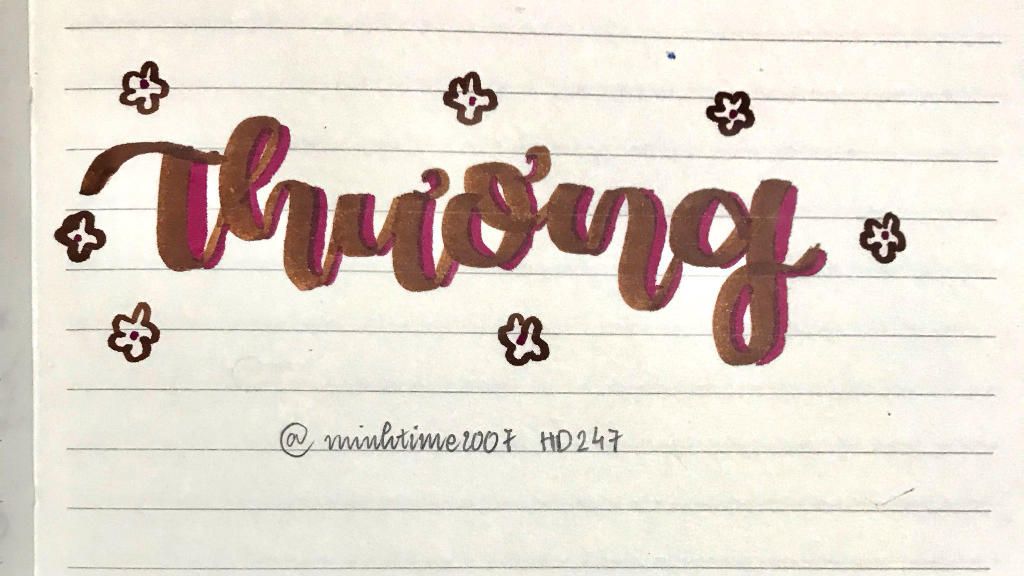 Thương
@minhtime2007 HD247